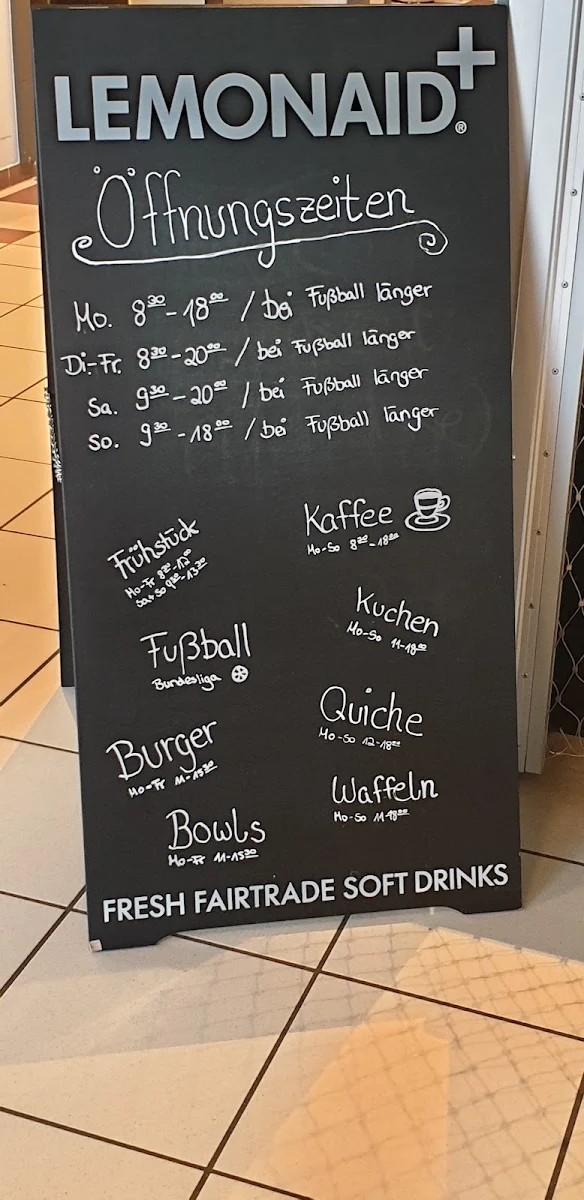 LEMONAID+®
Öffnungszeiten
Mo. 8³⁰-18⁰⁰ / bei Fußball länger
Di-Fr. 8³⁰-20⁰⁰ / bei Fußball länger
Sa. 9³⁰-20⁰⁰ / bei Fußball länger
So. 9³⁰-18⁰⁰ / bei Fußball länger
Frühstück
Mo-Fr 8³⁰-12⁰⁰
Sa+So 9³⁰-13³⁰
Kaffee
Mo-So 8³⁰-18⁰⁰
Kuchen
Mo-So 11-18⁰⁰
Fußball
Bundesliga
Quiche
Mo-So 12-18⁰⁰
Burger
Mo-Fr 11-15³⁰
Waffeln
Mo-So 11-18⁰⁰
Bowls
Mo-Fr 11-15³⁰
FRESH FAIRTRADE SOFT DRINKS